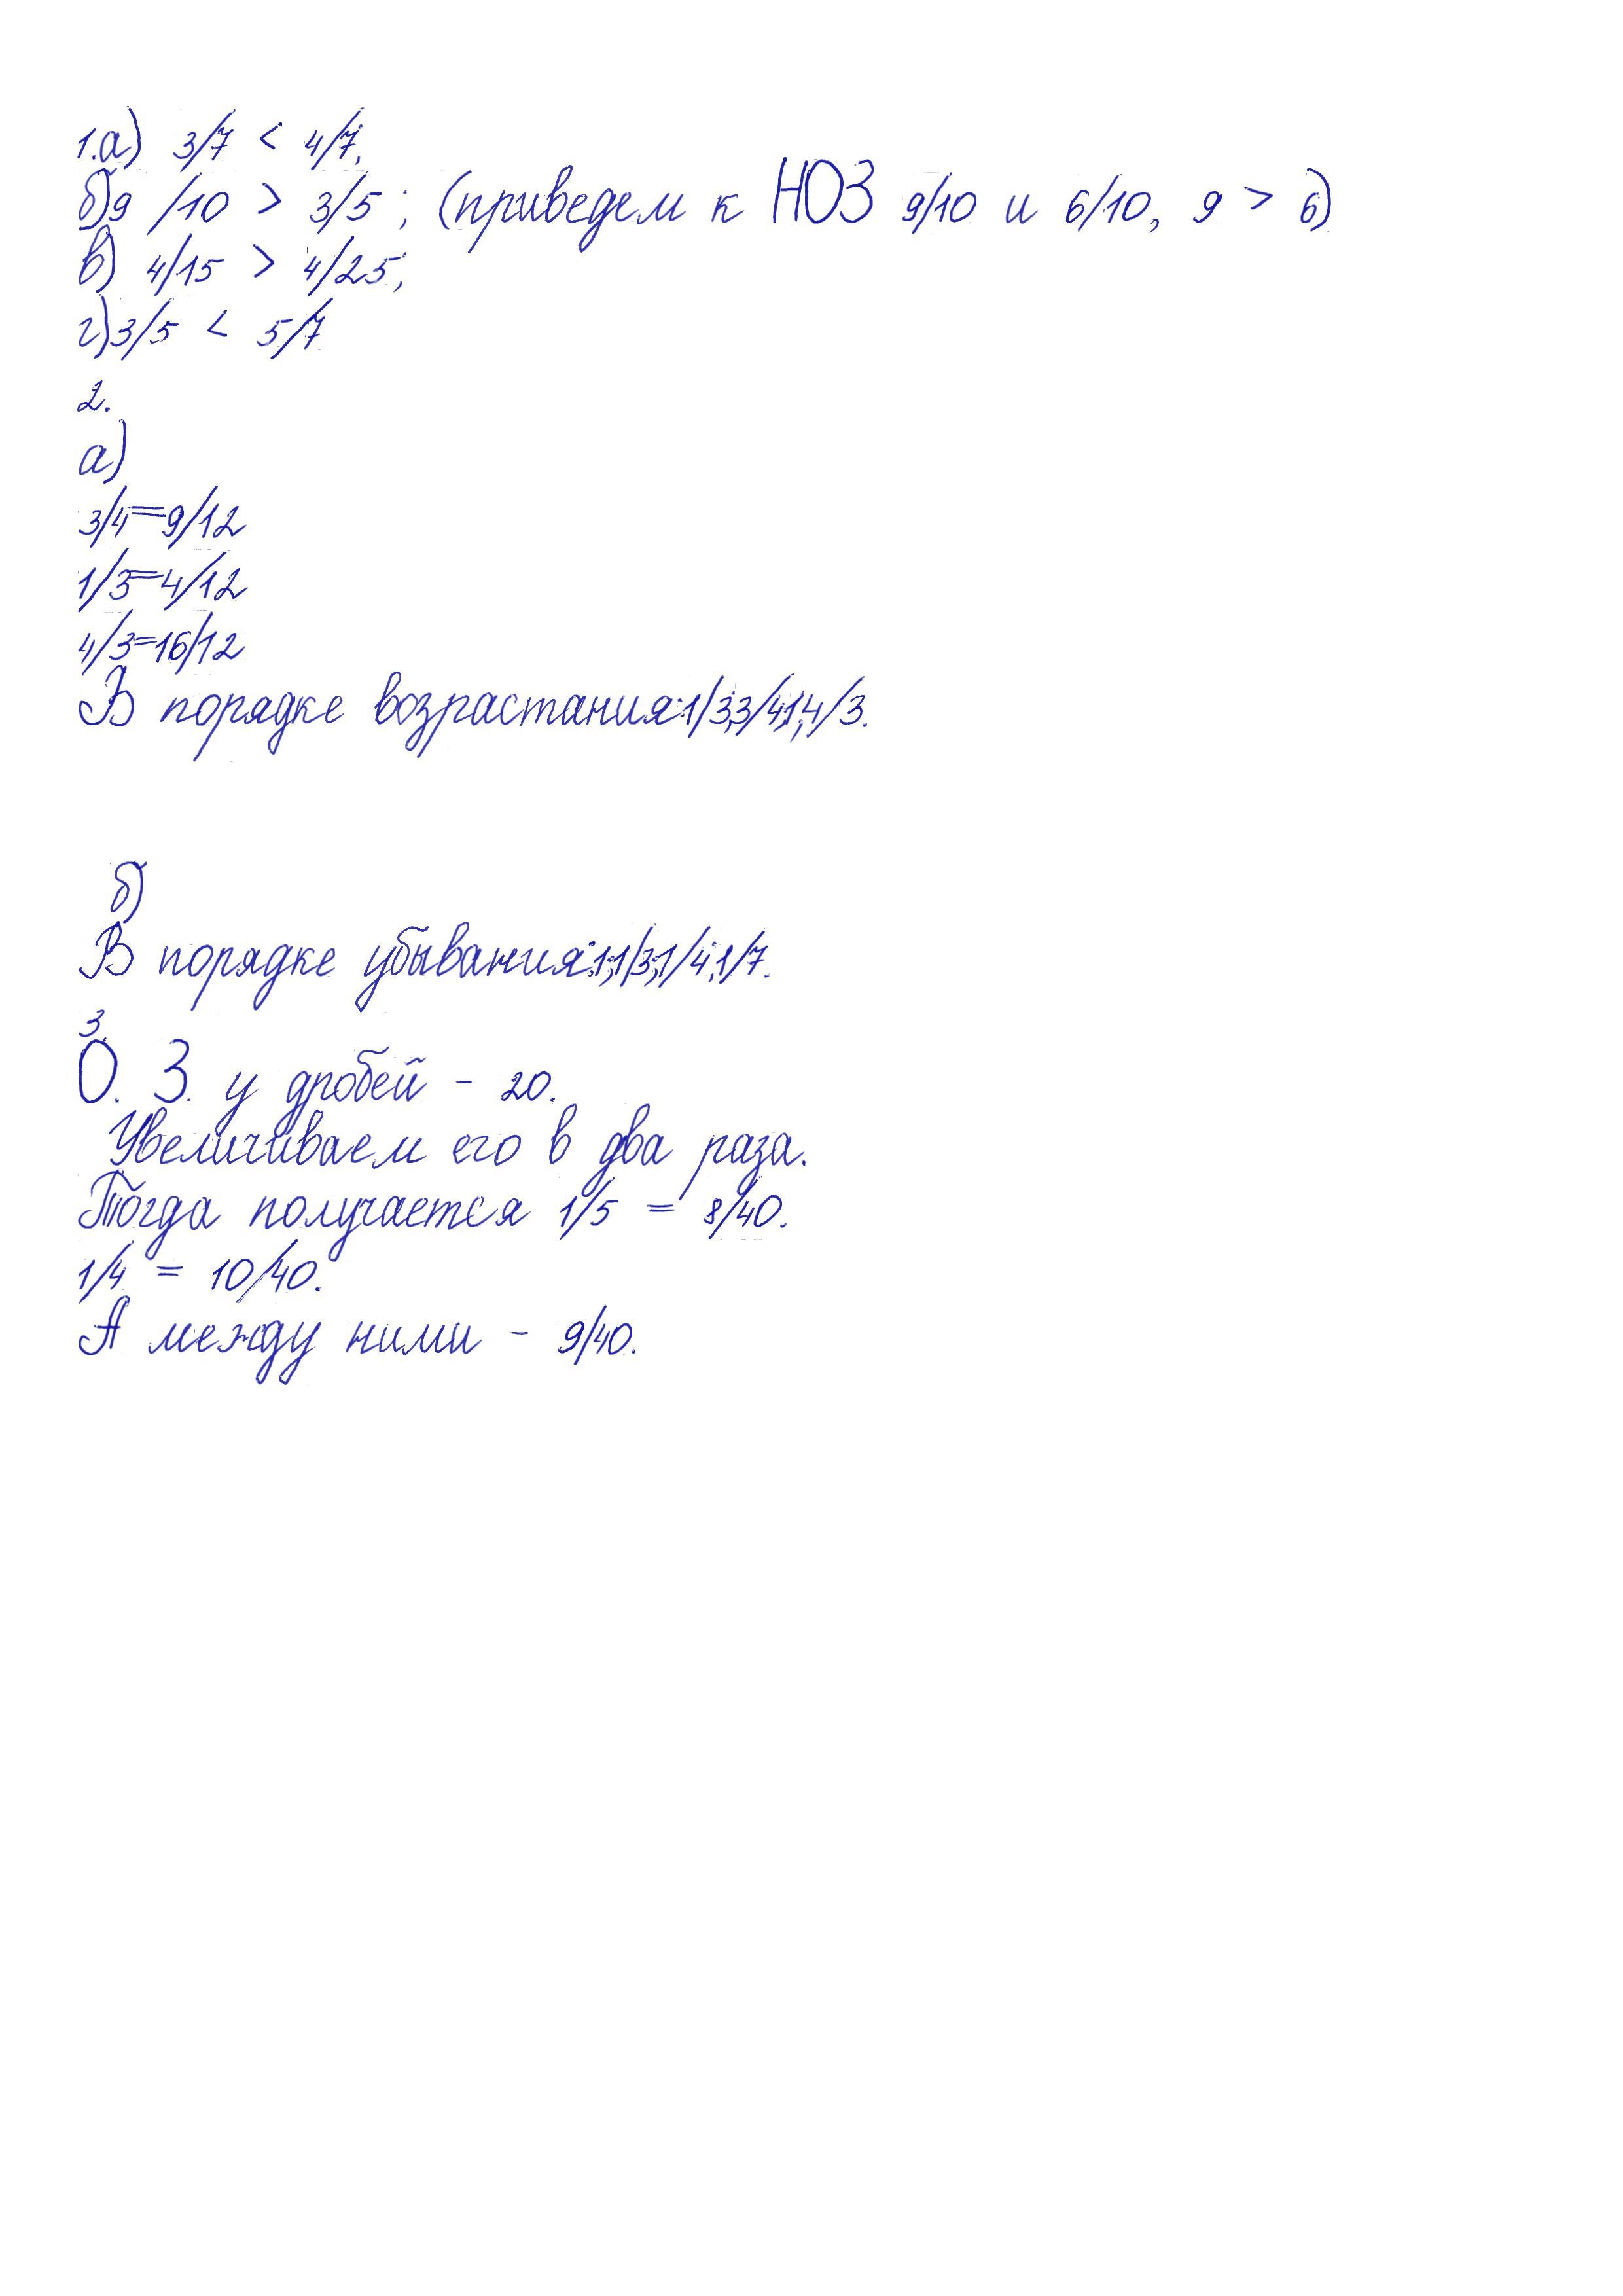 1.а) 3/7 < 4/7;
б)9 /10 > 3/5 ; (приведем к НОЗ 9/10 и 6/10, 9 > 6)
в) 4/15 > 4/25;
г)3/5 < 5/7
2.
а)
3/4=9/12
1/3=4/12
4/3=16/12
В порядке возрастания:1/3;3/4;1;4/3.
б)
В порядке убывания:1;1/3;1/4;1/7.
3.
О. З. у дробей - 20.
Увеличиваем его в два раза.
Тогда получается 1/5 = 8/40.
1/4 = 10/40.
А между ними - 9/40.